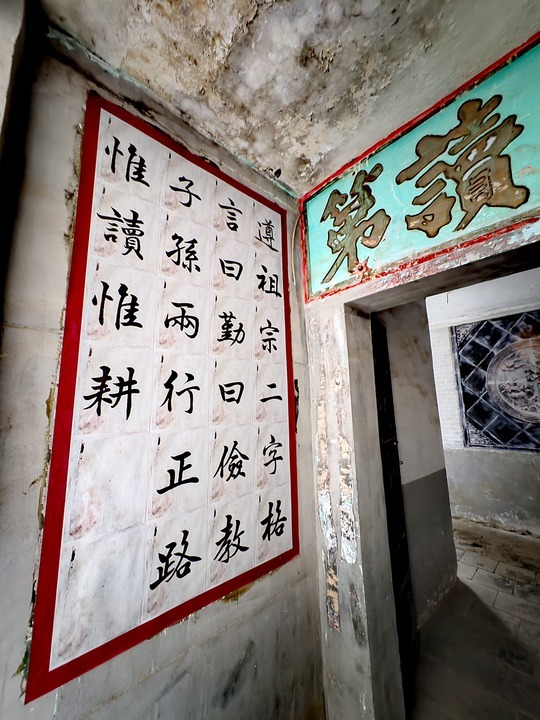 讀第
遵祖宗二字格
言曰勤曰儉教
子孫兩行正路
惟讀惟耕